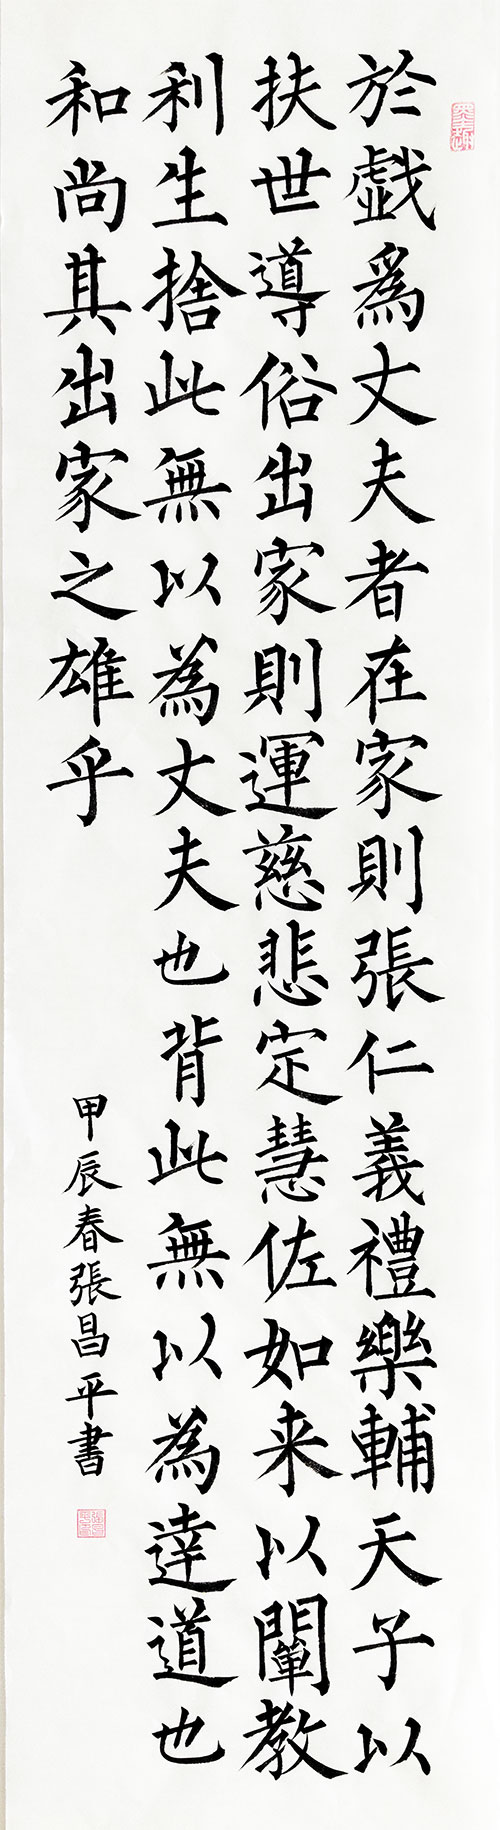 於戲為丈夫者在家則張仁義禮樂輔天子以
扶世導俗出家則運慈悲定慧佐如来以闡教
利生捨此無以為丈夫也背此無以為達道也
和尚其出家之雄乎
甲辰春張昌平書